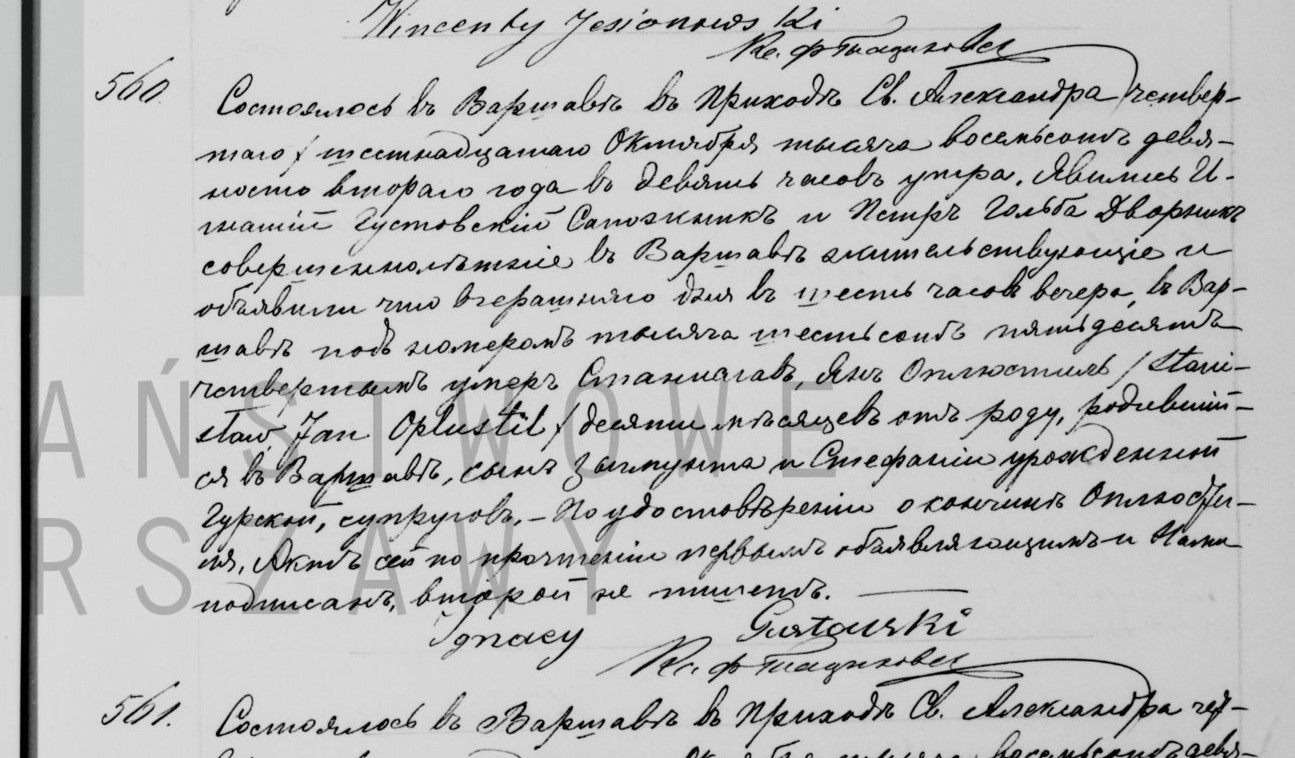 Wincenty Jesionowski
Кс. Ф
560. Состоялось въ Варшавѣ въ Приходѣ Св. Александра /четвер-
таго/ шестнадцатаго Октября тысяча восемьсотъ девя-
носто втораго года въ девять часовъ утра. Явились И-
гнатій Густовскій Сапожникъ и Петръ Гольба Дворникъ
совершеннолѣтніе въ Варшавѣ жительствующіе и
объявили что вчерашняго дня въ шесть часовъ вечера, въ Вар-
шавѣ подъ номеромъ тысяча шестьсотъ пятьдесятъ
четвертымъ умеръ Станиславъ Янъ Оплюстиль /Stani-
sław Jan Oplustil/ десяти мѣсяцевъ отъ роду, родившій-
ся въ Варшавѣ, сынъ Зыгмунта и Стефаніи урожденной
Гурской, супруговъ. – По удостовѣреніи о кончинѣ Оплюсти-
ля, Актъ сей по прочтеніи первымъ объявляющимъ и Нами
подписанъ, второй не пишетъ.
Ignacy Gustowski
Кс. Ф
561. Состоялось въ Варшавѣ въ Приходѣ Св. Александра чет-
восемьсотъ девя-
PAŃSTWOWE
WARSZAWY